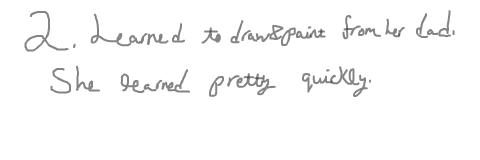 2. Learned to draw&paint from her dad.
She learned pretty quickly.